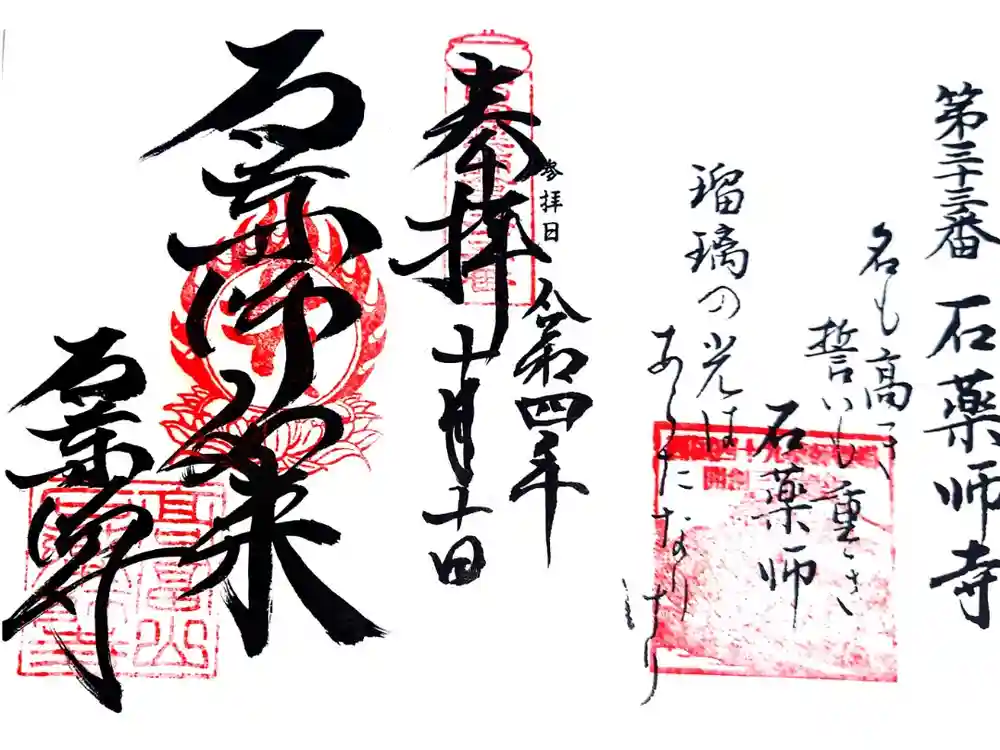 第三十三番 石薬師寺
名も高き
誓いも重き
石薬師
瑠璃の光は
あらたなりけり
参拝日
令和四年
奉拝
十月十日
石薬師如来
石薬師寺
高富山
石薬師寺